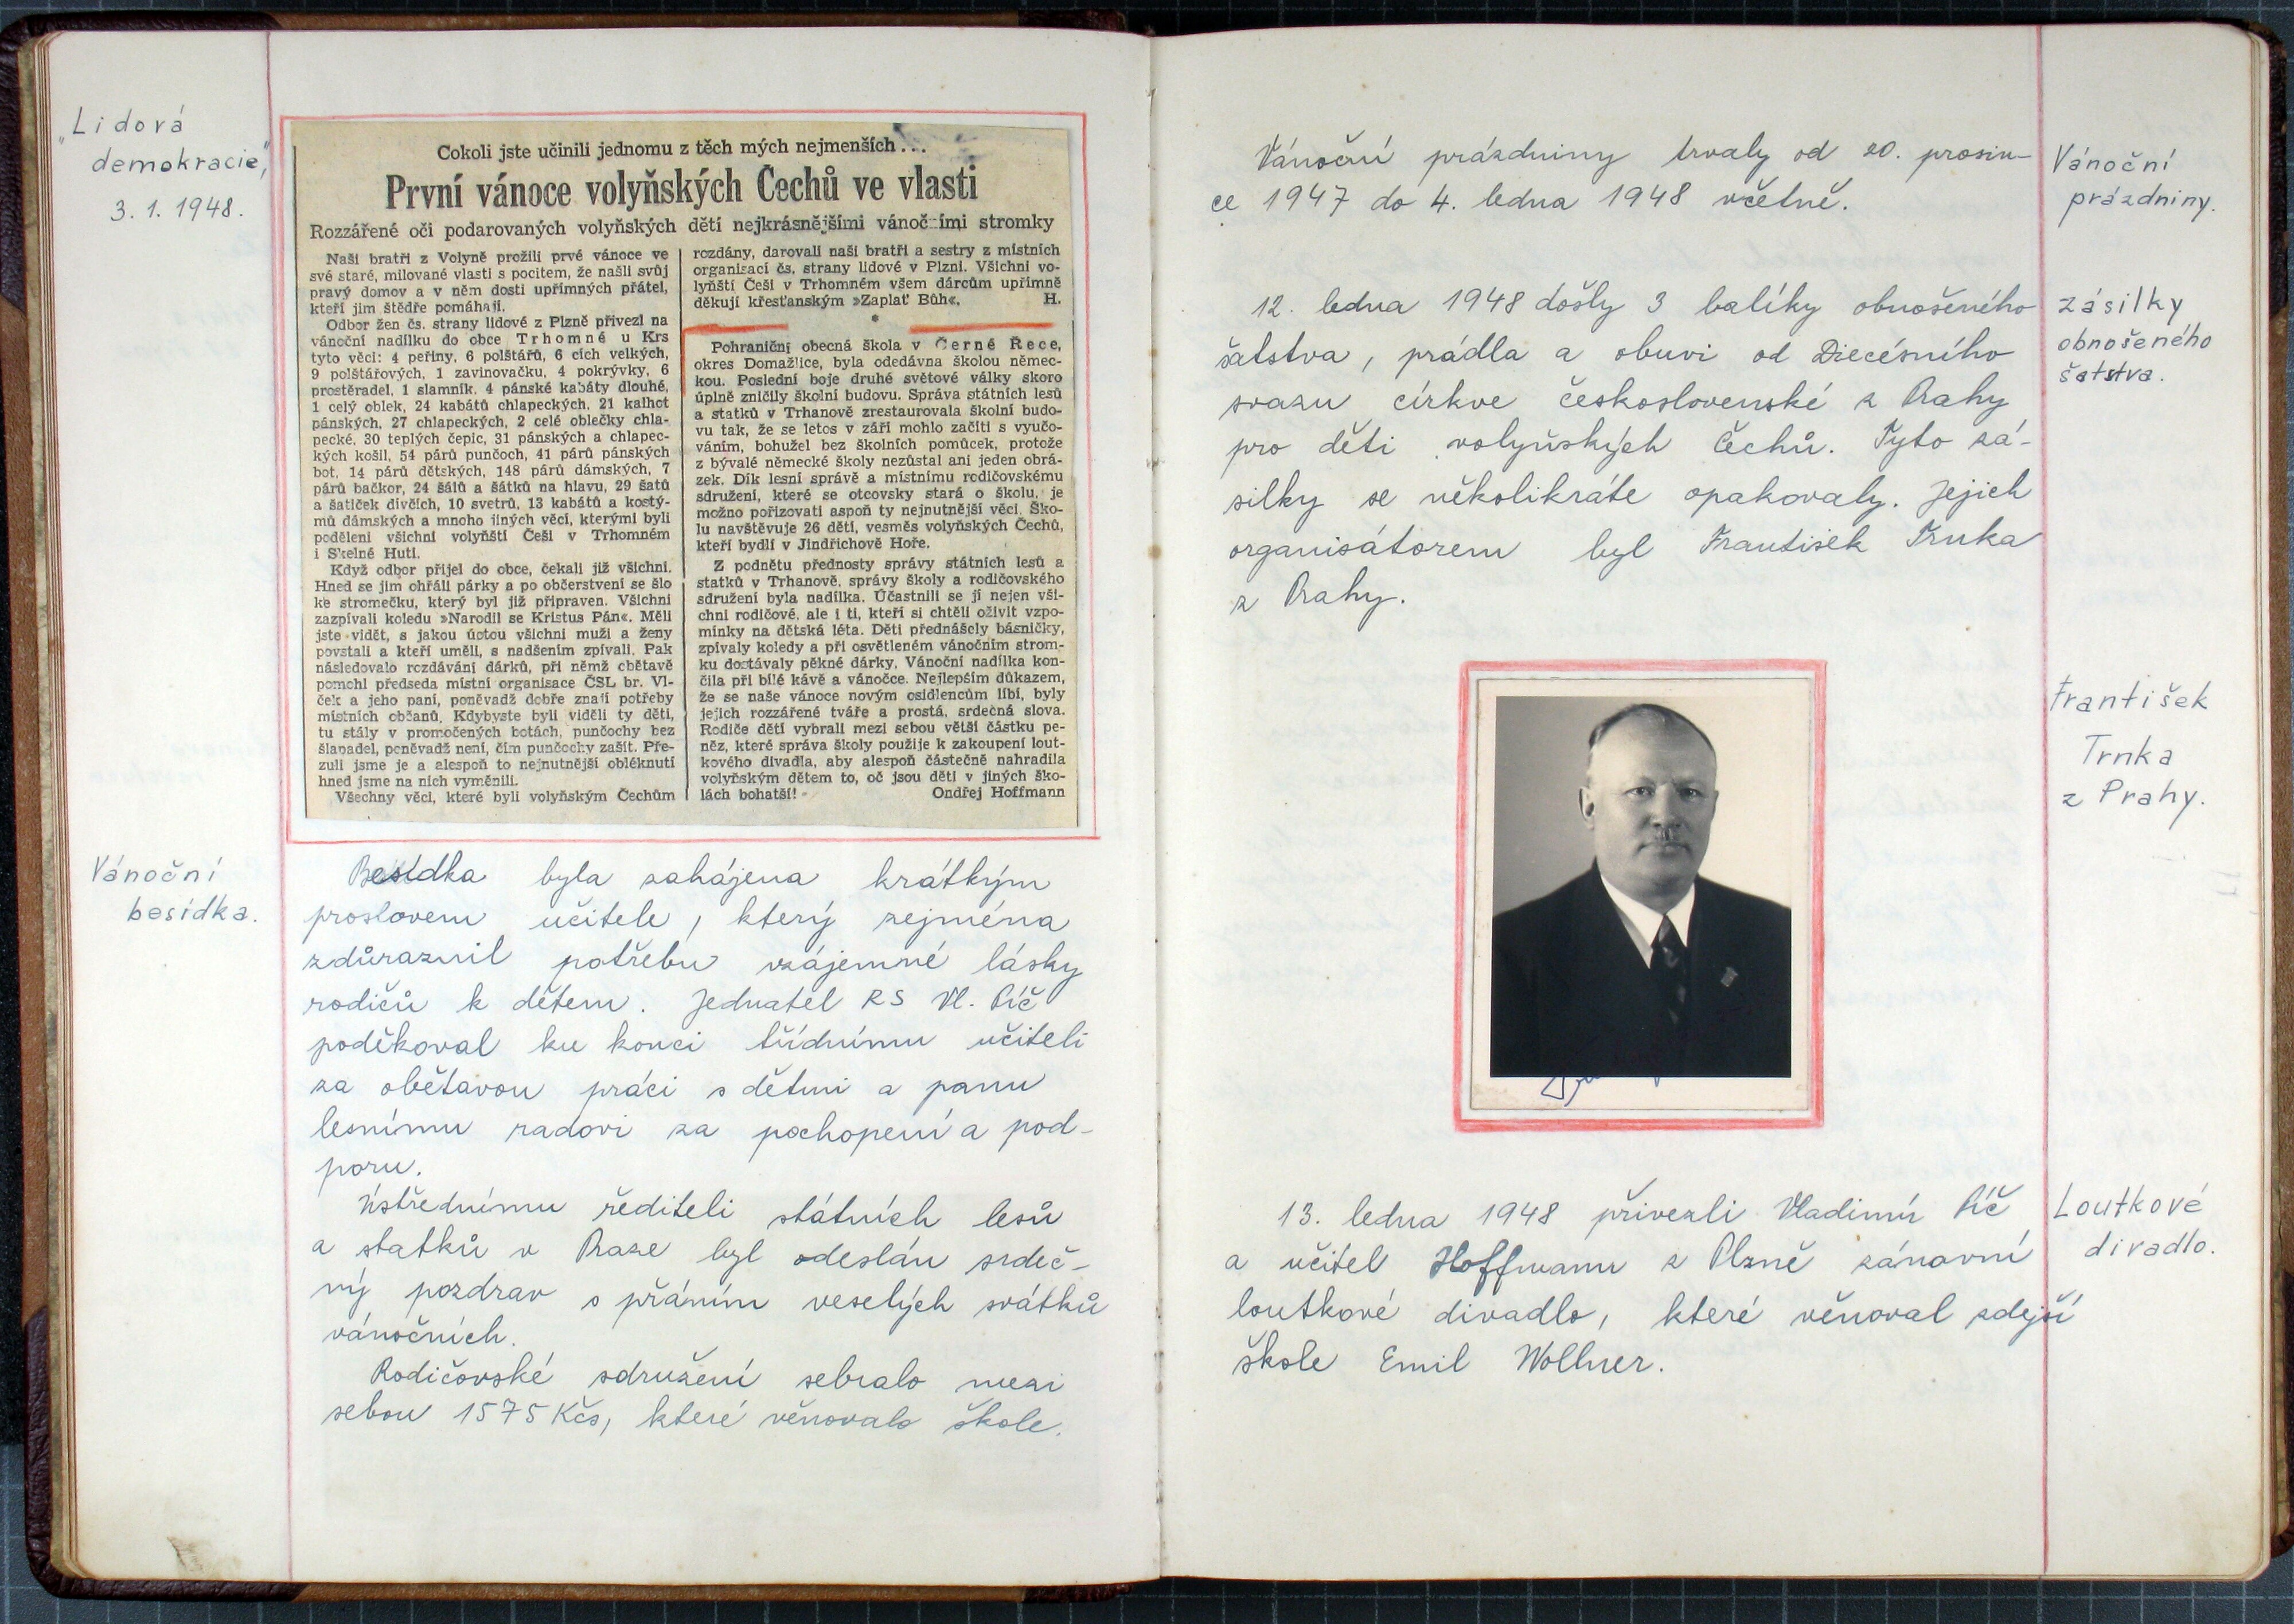 „Lidová
demokracie,"
3. 1. 1948.
Cokoli jste učinili jednomu z těch mých nejmenších . . .
První vánoce volyňských Čechů ve vlasti
Rozzářené oči podarovaných volyňských dětí nejkrásnějšími vánočními stromky
Naši bratři z Volyně prožili prvé vánoce ve
své staré, milované vlasti s pocitem, že našli svůj
pravý domov a v něm dosti upřímných přátel,
kteří jim štědře pomáhají.
Odbor žen čs. strany lidové z Plzně přivezl na
vánoční nadílku do obce Trhomné u Krs
tyto věci: 4 peřiny, 6 polštářů, 6 cích velkých,
9 polštářových, 1 zavinovačku, 4 pokrývky, 6
prostěradel, 1 slamník, 4 pánské kabáty dlouhé,
1 celý oblek, 24 kabátů chlapeckých, 21 kalhot
pánských, 27 chlapeckých, 2 celé oblečky chla-
pecké, 30 teplých čepic, 31 pánských a chlapec-
kých košil, 54 párů punčoch, 41 párů pánských
bot, 14 párů dětských, 148 párů dámských, 7
párů bačkor, 24 šálů a šátků na hlavu, 29 šatů
a šatiček dívčích, 10 svetrů, 13 kabátů a kostý-
mů dámských a mnoho jiných věcí, kterými byli
poděleni všichni volyňští Češi v Trhomném
i Skelné Huti.
Když odbor přijel do obce, čekali již všichni.
Hned se jim ohřáli párky a po občerstvení se šlo
ke stromečku, který byl již připraven. Všichni
zazpívali koledu »Narodil se Kristus Pán«. Měli
jste vidět, s jakou úctou všichni muži a ženy
povstali a kteří uměli, s nadšením zpívali. Pak
následovalo rozdávání dárků, při němž obětavě
pomohl předseda místní organisace ČSL br. Vl-
ček a jeho paní, poněvadž dobře znají potřeby
místních občanů. Kdybyste byli viděli ty děti,
tu stály v promočených botách, punčochy bez
šlapadel, poněvadž není, čím punčochy zašít. Pře-
zuli jsme je a alespoň to nejnutnější obléknutí
hned jsme na nich vyměnili.
Všechny věci, které byli volyňským Čechům
rozdány, darovali naši bratři a sestry z místních
organisací čs. strany lidové v Plzni. Všichni vo-
lyňští Češi v Trhomném všem dárcům upřímně
děkují křesťanským »Zaplať Bůh«. H.
*
Pohraniční obecná škola v Černé Řece,
okres Domažlice, byla odedávna školou němec-
kou. Poslední boje druhé světové války skoro
úplně zničily školní budovu. Správa státních lesů
a statků v Trhanově zrestaurovala školní budo-
vu tak, že se letos v září mohlo začíti s vyučo-
váním, bohužel bez školních pomůcek, protože
z bývalé německé školy nezůstal ani jeden obrá-
zek. Dík lesní správě a místnímu rodičovskému
sdružení, které se otcovsky stará o školu, je
možno pořizovati aspoň ty nejnutnější věci. Ško-
lu navštěvuje 26 dětí, vesměs volyňských Čechů,
kteří bydlí v Jindřichově Hoře.
Z podnětu přednosty správy státních lesů a
statků v Trhanově, správy školy a rodičovského
sdružení byla nadílka. Účastnili se jí nejen vši-
chni rodičové, ale i ti, kteří si chtěli oživit vzpo-
mínky na dětská léta. Děti přednášely básničky,
zpívaly koledy a při osvětleném vánočním strom-
ku dostávaly pěkné dárky. Vánoční nadílka kon-
čila při bílé kávě a vánočce. Nejlepším důkazem,
že se naše vánoce novým osidlencům líbí, byly
jejich rozzářené tváře a prostá, srdečná slova.
Rodiče dětí vybrali mezi sebou větší částku pe-
něz, které správa školy použije k zakoupení lout-
kového divadla, aby alespoň částečně nahradila
volyňským dětem to, oč jsou děti v jiných ško-
lách bohatší! Ondřej Hoffmann
Vánoční
besídka.
Besídka byla zahájena krátkým
proslovem učitele, který zejména
zdůraznil potřebu vzájemné lásky
rodičů k dětem. Jednatel RS Vl. Píč
poděkoval ku konci třídnímu učiteli
za obětavou práci s dětmi a panu
lesnímu radovi za pochopení a pod-
poru.
Ústřednímu řediteli státních lesů
a statků v Praze byl odeslán srdeč-
ný pozdrav s přáním veselých svátků
vánočních.
Rodičovské sdružení sebralo mezi
sebou 1575 Kčs, které věnovalo škole.
Vánoční prázdniny trvaly od 20. prosin-
ce 1947 do 4. ledna 1948 včetně.
Vánoční
prázdniny.
12. ledna 1948 došly 3 balíky obnošeného
šatstva, prádla a obuvi od Diecésního
svazu církve československé z Prahy
pro děti volyňských Čechů. Tyto zá-
silky se několikráte opakovaly. Jejich
organisátorem byl František Trnka
z Prahy.
zásilky
obnošeného
šatstva.
František
Trnka
z Prahy.
13. ledna 1948 přivezli Vladimír Píč
a učitel Hoffmann z Plzně zánovní
loutkové divadlo, které věnoval zdejší
škole Emil Wollner.
Loutkové
divadlo.